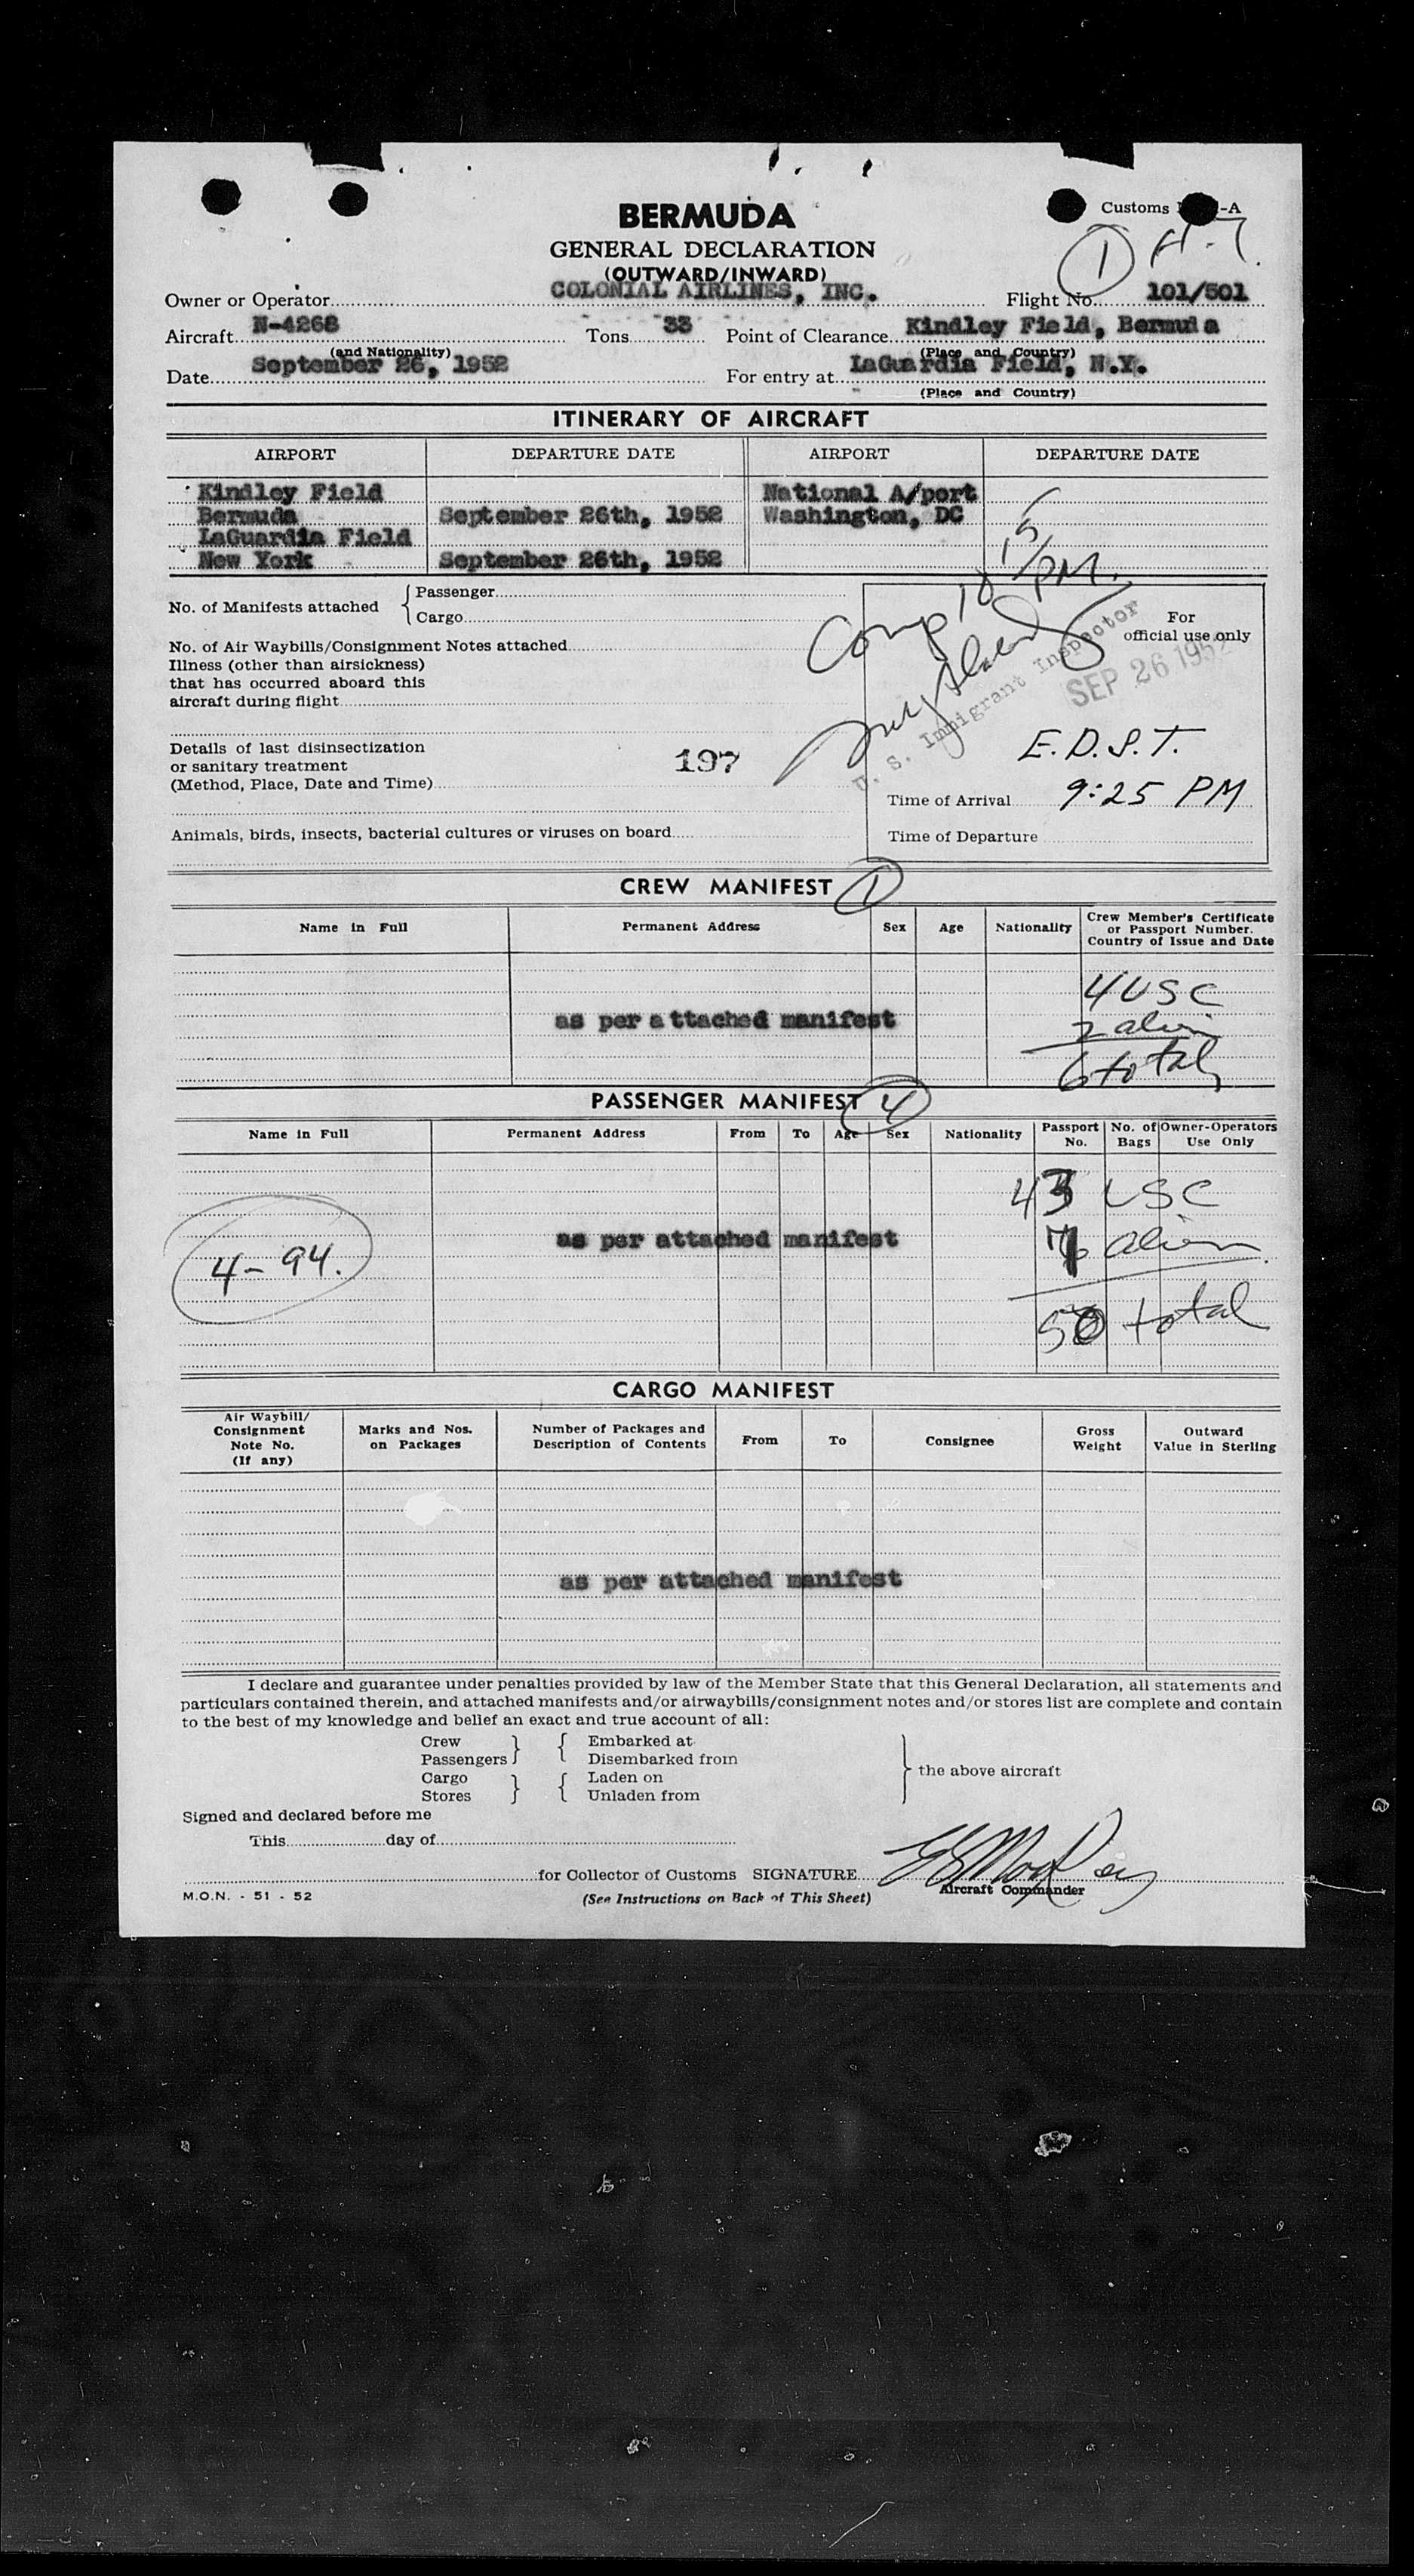 BERMUDA
Customs -A
GENERAL DECLARATION
1 H-7
(OUTWARD/INWARD)
Owner or Operator COLONIAL AIRLINES, INC. Flight No. 101/501
Aircraft N-4268 Tons 33 Point of Clearance Kindley Field, Bermuda
(and Nationality) (Place and Country)
Date September 26, 1952 For entry at LaGuardia Field, N.Y.
(Place and Country)
ITINERARY OF AIRCRAFT
AIRPORT DEPARTURE DATE AIRPORT DEPARTURE DATE
Kindley Field National A/port
Bermuda September 26th, 1952 Washington, DC
LaGuardia Field
New York September 26th, 1952
Comp 10 15/PM.
No. of Manifests attached { Passenger
Cargo
For
official use only
No. of Air Waybills/Consignment Notes attached
Illness (other than airsickness)
that has occurred aboard this
aircraft during flight
U. S. Immigrant Inspector
SEP 26 1952
Details of last disinsectization
or sanitary treatment
(Method, Place, Date and Time)
197
E.D.S.T.
Time of Arrival 9:25 PM
Animals, birds, insects, bacterial cultures or viruses on board
Time of Departure
CREW MANIFEST 1
Name in Full Permanent Address Sex Age Nationality Crew Member's Certificate
or Passport Number.
Country of Issue and Date
4 USC
as per attached manifest
2 alien
6 total
PASSENGER MANIFEST 4
Name in Full Permanent Address From To Age Sex Nationality Passport No. No. of Bags Owner-Operators Use Only
43 USC
4-94.
as per attached manifest
7 alien
50 total
CARGO MANIFEST
Air Waybill/
Consignment
Note No.
(If any)
Marks and Nos.
on Packages
Number of Packages and
Description of Contents
From To Consignee
Gross
Weight
Outward
Value in Sterling
as per attached manifest
I declare and guarantee under penalties provided by law of the Member State that this General Declaration, all statements and
particulars contained therein, and attached manifests and/or airwaybills/consignment notes and/or stores list are complete and contain
to the best of my knowledge and belief an exact and true account of all:
Crew } { Embarked at
Passengers Disembarked from
Cargo } { Laden on } the above aircraft
Stores Unladen from
Signed and declared before me
This day of
for Collector of Customs SIGNATURE
Aircraft Commander
M.O.N. - 51 - 52
(See Instructions on Back of This Sheet)